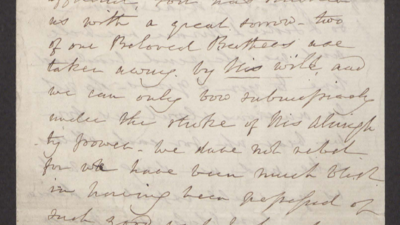 us with a great sorrow - two
of our Beloved Brothers are
taken away. by His will, and
we can only bow submissively
under the stroke of His Almigh
ty power - we dare not rebel
for we have been much blest
in having been possessed of
such good